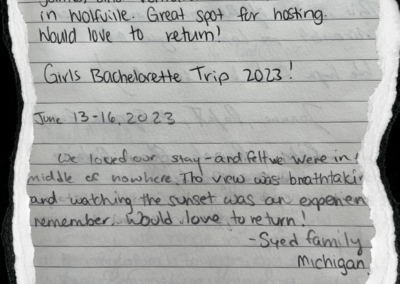 in Wolfville. Great spot for hosting.
Would love to return!
Girls Bachelorette Trip 2023!
June 13-16, 2023
We loved our stay - and felt we were in
middle of nowhere. The view was breathtakin
and watching the sunset was an experien
remember. Would love to return!
- Syed family
Michigan.